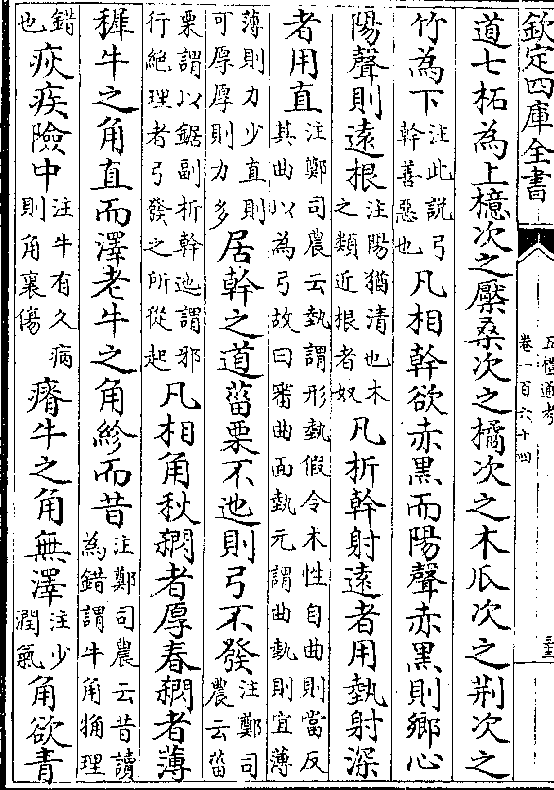 欽定四庫全書
五禮通考
卷一百六十四
道七柘為上檍次之檿桑次之橘次之木瓜次之荆次之
竹為下注此說弓幹善惡也凡相幹欲赤黑而陽聲赤黑則鄉心
陽聲則逺根注陽猶清也木之類近根者奴凡析幹射逺者用埶射深
者用直注鄭司農云埶謂形埶假令木性自曲則當反其曲以為弓故曰審曲面埶元謂曲埶則宜薄
薄則力少直則可厚厚則力多居幹之道菑栗不迆則弓不發注鄭司農云菑
栗謂以鋸副析幹迆謂邪行絶理者弓發之所從起凡相角秋閷者厚春閷者薄
穉牛之角直而澤老牛之角紾而昔注鄭司農云昔讀為錯謂牛角觕理
錯也疢疾險中注牛有久病則角裏傷瘠牛之角無澤注少潤氣角欲青